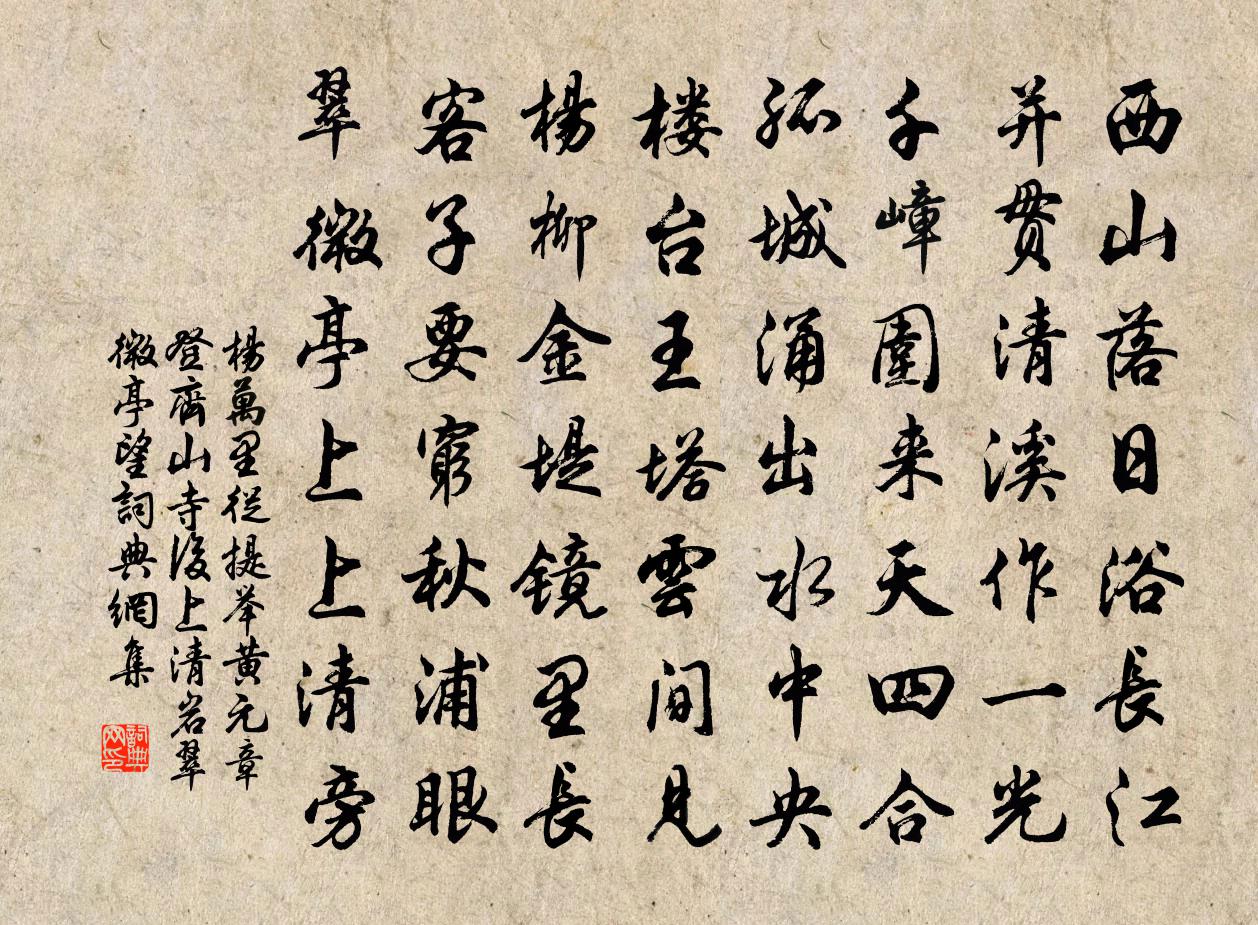 西山落日浴長江
并贯清溪作一光
千嶂圍来天四合
孤城涌出水中央
楼台王塔雲间見
楊柳金堤镜里長
客子要窮秋浦眼
翠微亭上上清旁
楊萬里從提举黄元章
登齊山寺後上清岩翠
微亭望詞典網集
詞典
网印